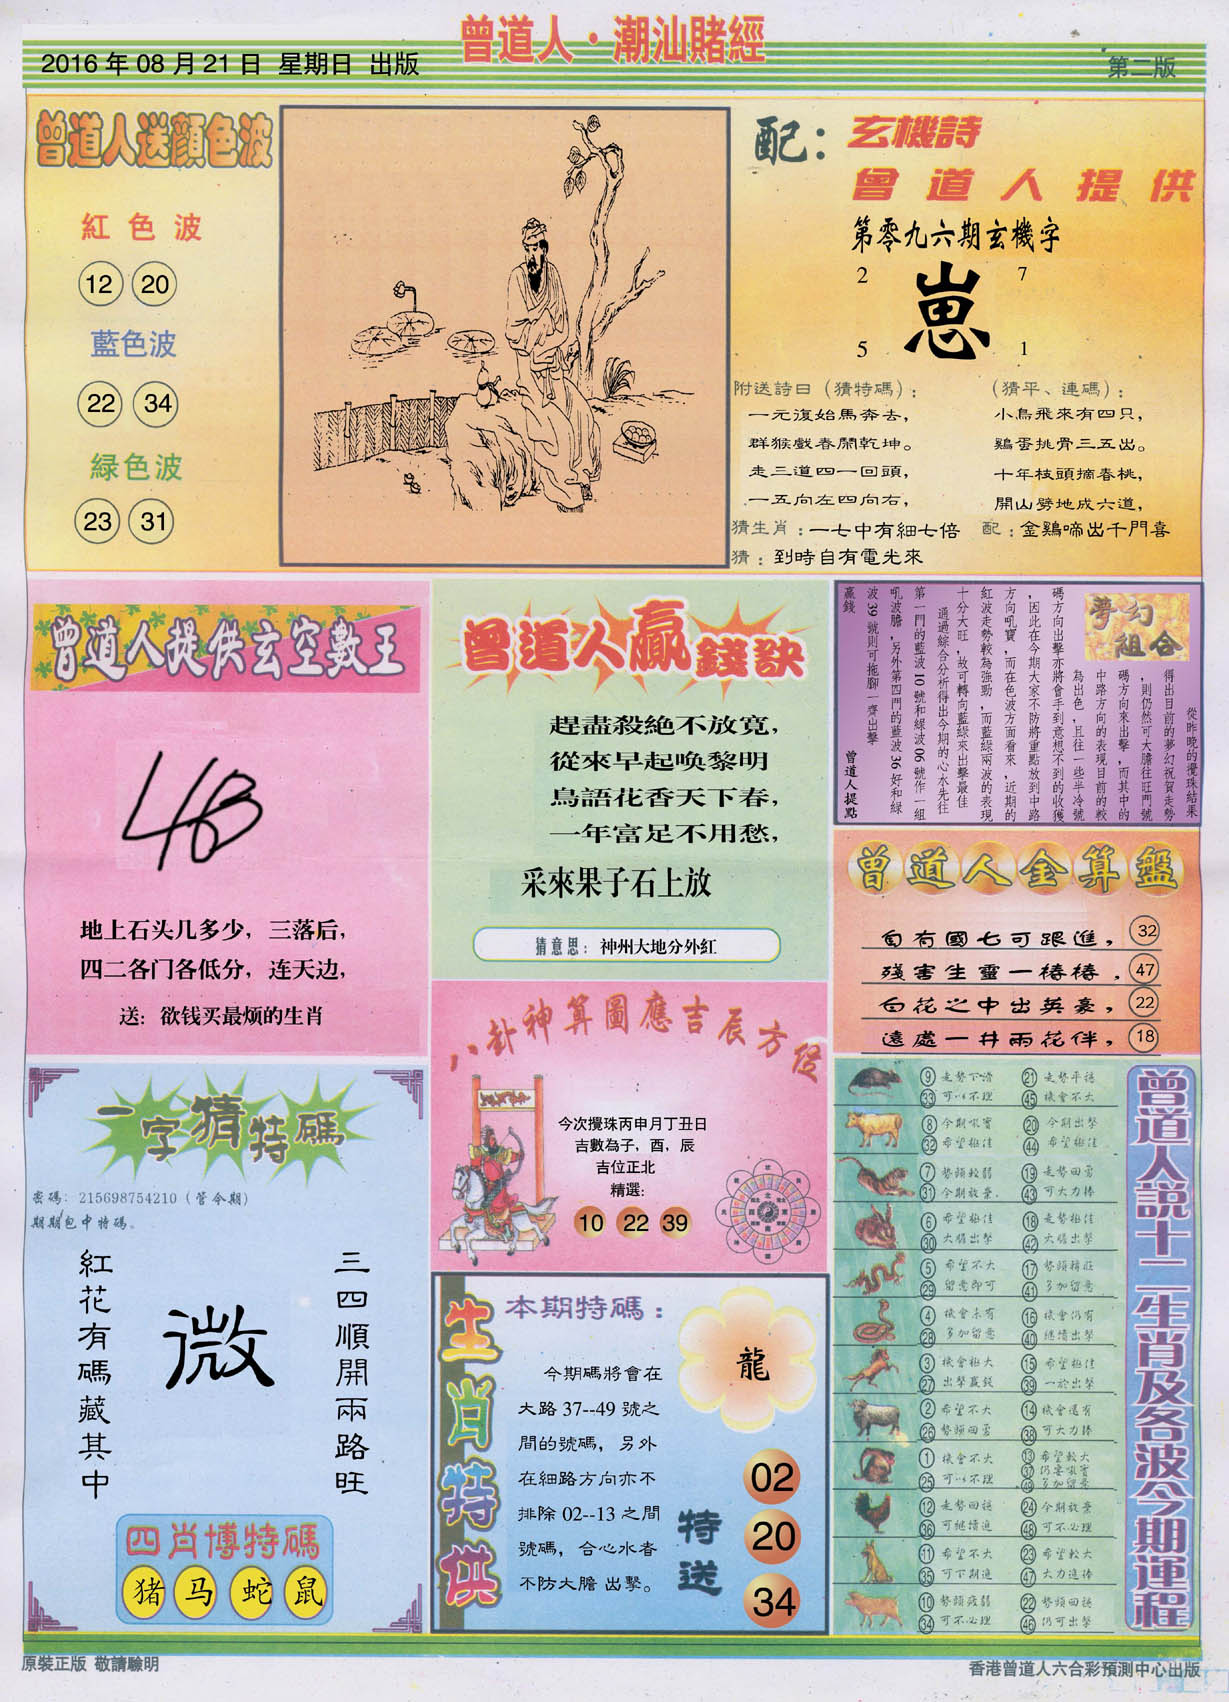 曾道人·潮汕賭經
2016 年 08 月 21 日 星期日 出版
第二版
曾道人送顏色波
紅色波
12 20
藍色波
22 34
緑色波
23 31
配：
玄機詩
曾道人提供
第零九六期玄機字
2 7
崽
5 1
附送詩曰（猜特碼）：
一元復始馬奔去，
群猴戲春鬧乾坤。
走三道四一回頭，
一五向左四向右，
（猜平、連碼）：
小鳥飛來有四只，
鷄蛋挑骨三五出。
十年枝頭摘春桃，
開山劈地成六道，
猜生肖：一七中有細七倍
配：金鷄啼出千門喜
猜：到時自有電光來
曾道人提供玄空數王
地上石头几多少，三落后，
四二各门各低分，连天边，
送：欲钱买最烦的生肖
曾道人贏錢訣
趕盡殺絶不放寬，
從來早起唤黎明
鳥語花香天下春，
一年富足不用愁，
采來果子石上放
猜意思：神州大地分外紅
夢幻
組合
從昨晚的攪珠結果
得出目前的夢幻祝賀走勢
，則仍然可大膽往旺門號
碼方向來出擊，而其中的
中路方向的表現目前的較
為出色，且往一些半冷號
碼方向出擊亦將會手到意想不到的收獲
，因此在今期大家不防將重點放到中路
方向吼寶，而在色波方面看來，近期的
紅波走勢較為強勁，而藍綠兩波的表現
十分大旺，故可轉向藍綠來出擊最佳
通過綜合分析得出今期的心水先往
第一門的藍波 10 號和綠波 06 號作一組
吼波膽，另外第四門的藍波 36 好和綠
波 39 號則可拖腳一齊出擊
贏錢
曾道人提點
曾道人金算盤
旬有國七可跟進， 32
殘害生靈一樁樁． 47
白花之中出英豪， 22
遠處一井兩花伴， 18
一字猜特碼
密碼：215698754210（管今期）
期期包中特碼。
三四順開兩路旺
微
紅花有碼藏其中
四肖博特碼
猪 马 蛇 鼠
八卦神算圖應吉辰方位
今次攪珠丙申月丁丑日
吉數為子，酉，辰
吉位正北
精選:
10 22 39
生肖特供
本期特碼：
今期碼將會在
大路 37--49 號之
間的號碼，另外
在細路方向亦不
排除 02--13 之間
號碼，合心水者
不防大膽 出擊。
龍
特送
02
20
34
曾道人説十二生肖及各波今期運程
9 走勢下滑 21 走勢平穩
33 可以不理 45 機會不大
8 今期吼寶 20 今期出擊
32 希望極佳 44 希望極佳
7 勢頭較弱 19 走勢回勇
31 今期放棄. 43 可大力捧
6 希望極佳 18 走勢極佳
30 大膽出擊 42 大膽出擊
5 希望不大 17 勢頭精旺
29 留意即可 41 多加留意
4 機會未有 16 機會仍有
28 多加留意 40 繼續出擊
3 機會極大 15 希望極佳
27 出擊贏錢 39 一於出擊
2 希望不大 14 機會還有
26 勢頭回勇 38 可大力捧
1 機會不大 13 希望較大
25 可以不理 37 仍要吼寶
49 多加留意
12 走勢回穩 24 今期放棄
36 可繼續追 48 可不必理
11 希望不大 23 希望較大
35 可下期追 47 大力追捧
10 勢頭疲弱 22 勢頭回穩
34 可不必理 46 仍可出擊
原裝正版 敬請驗明
香港曾道人六合彩預測中心出版